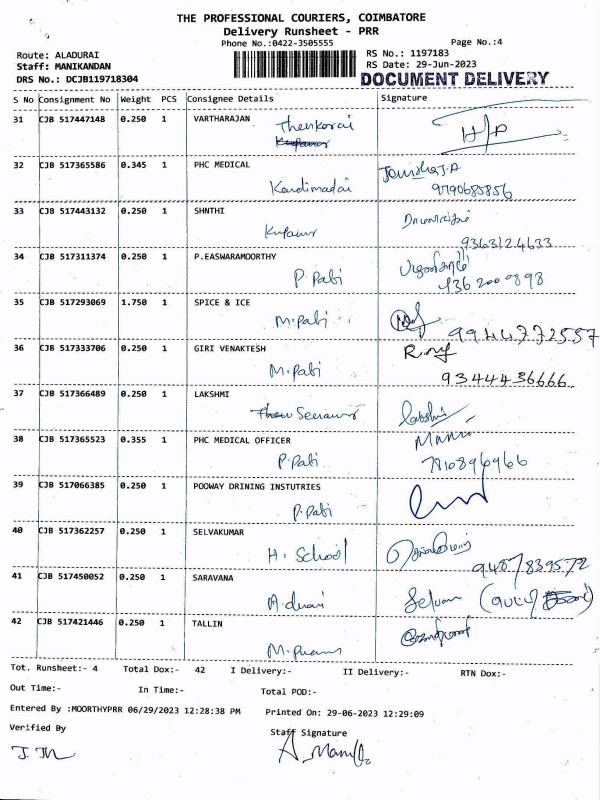 THE PROFESSIONAL COURIERS, COIMBATORE
Delivery Runsheet - PRR
Phone No.:0422-3505555
Page No.:4
Route: ALADURAI
Staff: MANIKANDAN
DRS No.: DCJB119718304
RS No.: 1197183
RS Date: 29-Jun-2023
DOCUMENT DELIVERY
S No Consignment No Weight PCS Consignee Details Signature
31 CJB 517447148 0.250 1 VARTHARAJAN
H/P
32 CJB 517365586 0.345 1 PHC MEDICAL
Kandimadai 9790685856
33 CJB 517443132 0.250 1 SHNTHI
9363124633
34 CJB 517311374 0.250 1 P.EASWARAMOORTHY
P. Pabi
35 CJB 517293069 1.750 1 SPICE & ICE
M. Pabi 9944772557
36 CJB 517333706 0.250 1 GIRI VENAKTESH
M. Pabi 9344436666
37 CJB 517366489 0.250 1 LAKSHMI
Lakshmi
38 CJB 517365523 0.355 1 PHC MEDICAL OFFICER
P. Pabi
39 CJB 517066385 0.250 1 POOWAY DRINING INSTUTRIES
P. Pabi
40 CJB 517362257 0.250 1 SELVAKUMAR
H. School 9487839572
41 CJB 517450052 0.250 1 SARAVANA
A. durai Selvam
42 CJB 517421446 0.250 1 TALLIN
Tot. Runsheet:- 4 Total Dox:- 42 I Delivery:- II Delivery:- RTN Dox:-
Out Time:- In Time:- Total POD:-
Entered By :MOORTHYPRR 06/29/2023 12:28:38 PM Printed On: 29-06-2023 12:29:09
Verified By Staff Signature